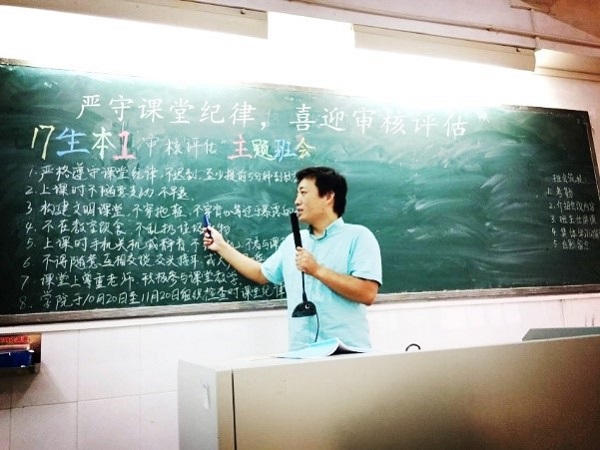 严守课堂纪律，喜迎审核评估
17生本1"审核评估"主题班会
1.严格遵守课堂纪律,不迟到,至少提前5分钟到教
2.上课时不随意走动不早退
3.构建文明课堂,不穿拖鞋,
4.不在教室饮食,不乱扔垃圾
5.上课时手机关机或静音
6.不得随意互相交谈交头接耳或
7.课堂上尊重老师,积极参与课堂教学
8.学院于10月20日至11月20日组织检查时课堂纪
班会流程
1.考勤
2.介绍会议内容
5.合影留念